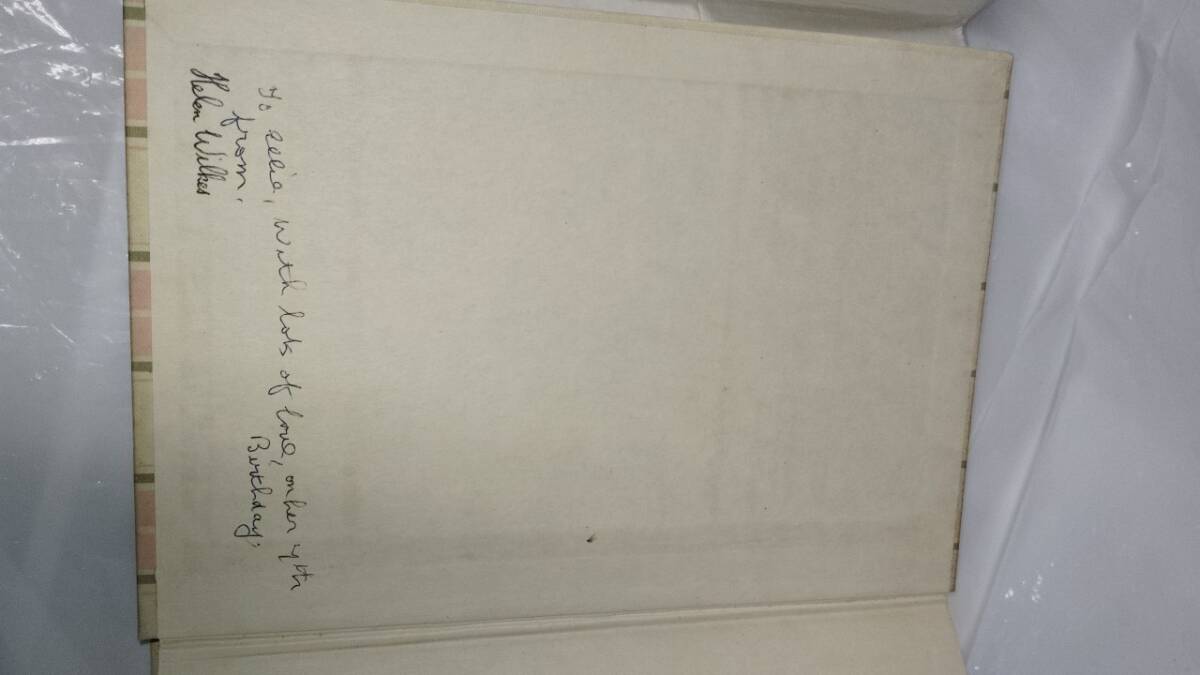 To Celia, with lots of love, on her 4th
Birthday.
from.
Helen Wilkes